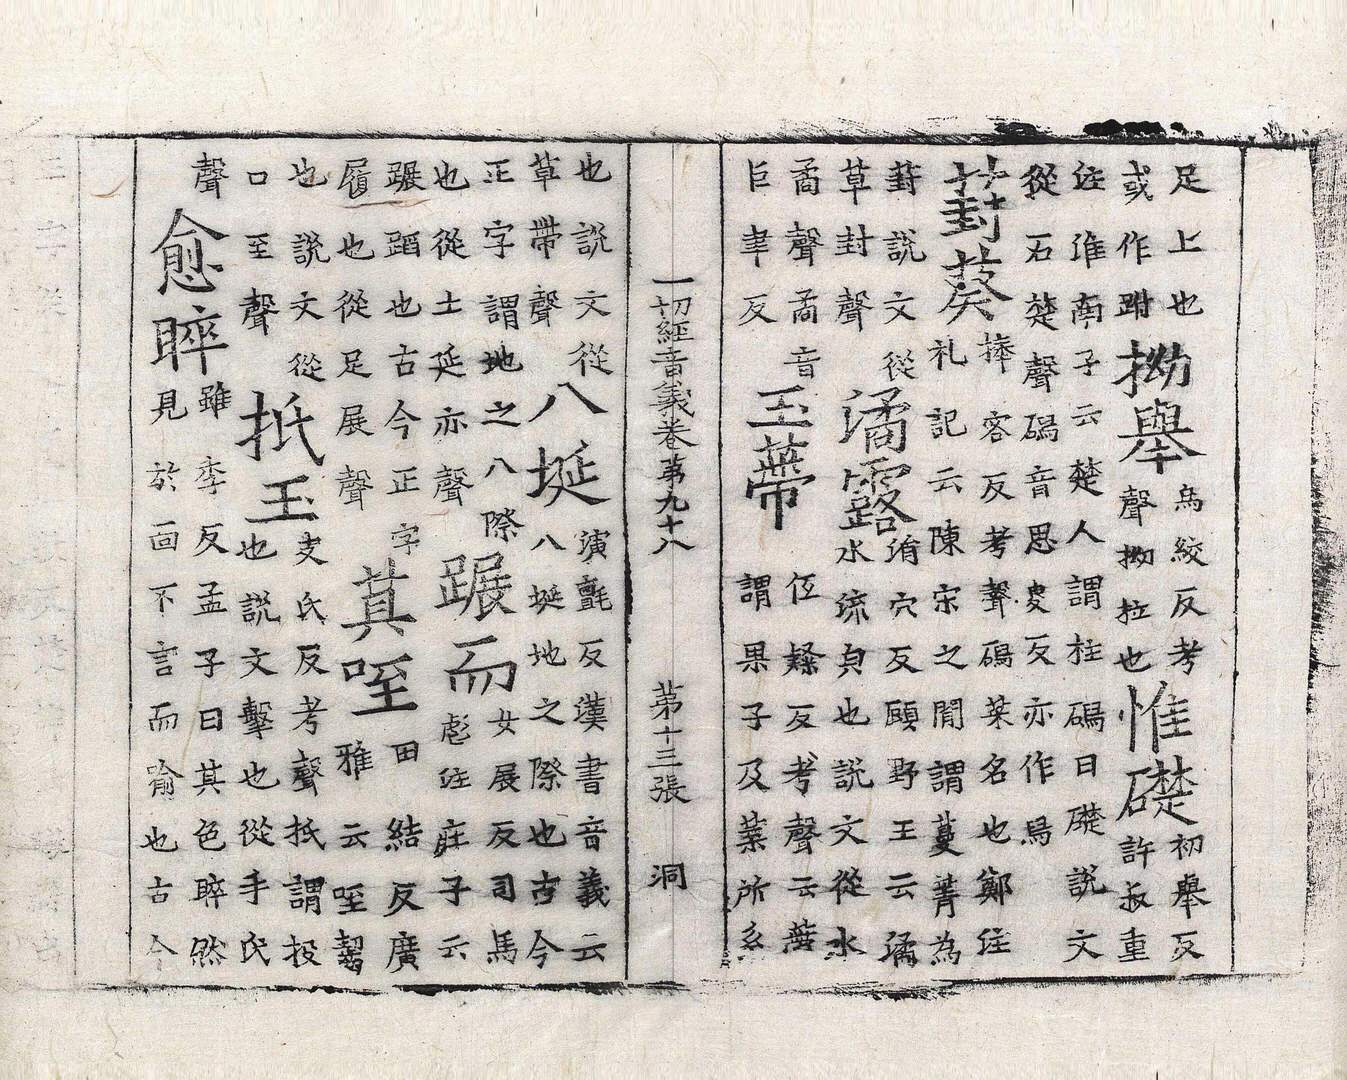 足上也
或作跗
拗舉
烏絞反考
聲拗拉也
惟礎
初舉反
許叔重
注淮南子云楚人謂柱磶曰礎說文
從石楚聲磶音思反亦作舄
葑葵
捧容反考聲磶菜名也鄭注
礼記云陳宋之閒謂蔓菁為
葑說文從
草封聲
潏露
淯穴反顧野王云潏
水流皃也說文從水
矞聲矞音
巨聿反
玉蔕
反考聲云蔕
謂果子及葉所系
一切經音義卷苐九十八 苐十三張 洞
也說文從
草帶聲
八埏
演氈反漢書音義云
八埏地之際也古今
正字謂地之八際
也從土延亦聲
蹍而
女展反司馬
彪注莊子云
蹍蹈也古今正字
履也從足展聲
莫咥
田結反廣
雅云咥齧
也說文從
口至聲
抵玉
支氏反考聲抵謂投
也說文擊也從手氏
聲
愈睟
雖季反孟子曰其色睟然
見於面不言而喻也古今